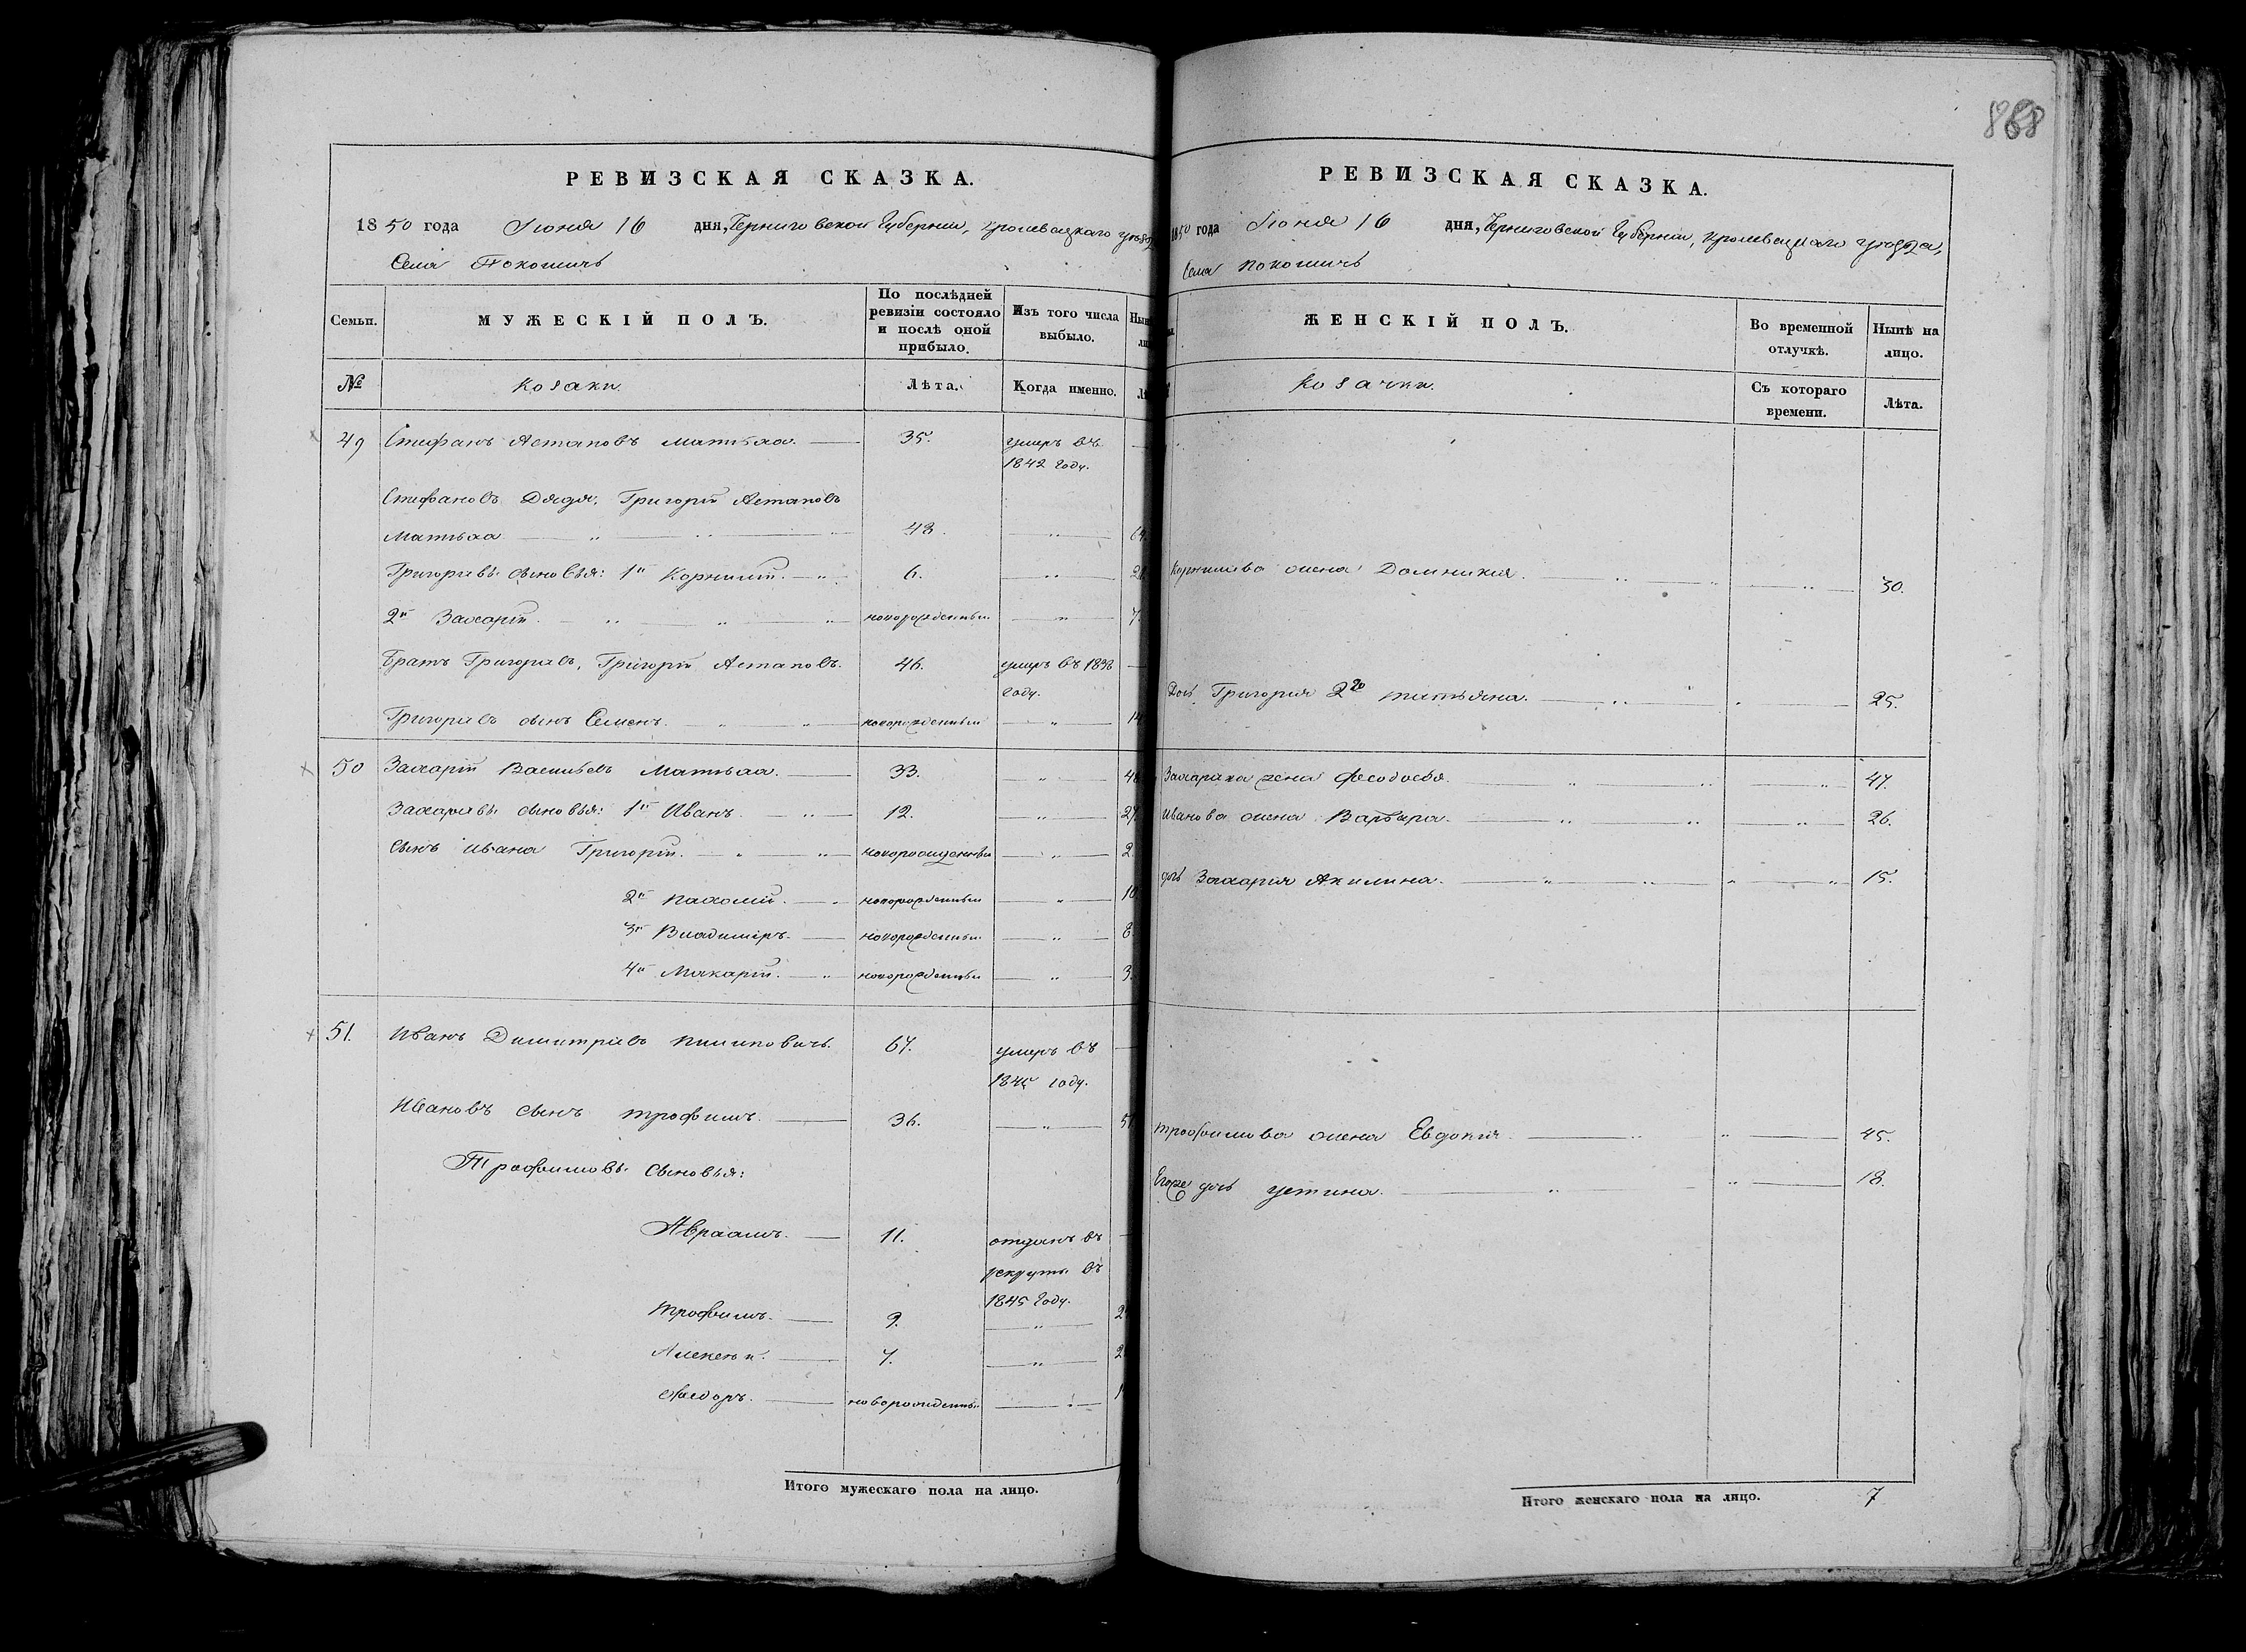 РЕВИЗСКАЯ СКАЗКА.
1850 года Іюня 16 дня, Черниговской Губерніи, Кролевецкаго уезда
Села Покошичь
Семьи. МУЖЕСКІЙ ПОЛЪ. По послѣдней ревизіи состояло и послѣ оной прибыло. Изъ того числа выбыло.
№ Козаки. Лѣта. Когда именно.
49 Стефанъ Астаповъ Матвѣха. 35. умеръ въ
1842 году.
Стефановъ Дядя, Григорій Астаповъ
48.
Григорiевы сыновья: 1й Корнилій. 6.
2й Захарій. новорожденный
Братъ Григоріевъ, Григорій Астаповъ. 46. умеръ въ
году.
Григоріевъ сынъ Семенъ. новорожденный 14
50 Захарій Васильевъ 33. 48
Захаріевы сыновья: 1й Иванъ. 12. 27.
Сынъ Ивана Григорій. новорожденный 2.
2й Пахомій. новорожденный 10
3й Владиміръ. новорожденный 8.
4й Макарій. новорожденный 3.
51. Иванъ Димитріевъ Пилиповичь. 67. умеръ въ
1845 году.
Ивановъ сынъ Трофимъ. 36. 51
Трофимовы Сыновья:
Авраамъ. 11. отданъ въ
рекруты въ
1845 году.
Трофимъ. 9. 2
Алексѣй. 7. 2
Федоръ. новорожденный 1
Итого мужескаго пола на лицо.
868
РЕВИЗСКАЯ СКАЗКА.
1850 года Іюня 16 дня, Черниговской Губерніи, Кролевецкаго уезда,
Села Покошичь
ЖЕНСКІЙ ПОЛЪ. Во временной отлучкѣ. Нынѣ на лицо.
Козачки. Съ котораго времени. Лѣта.
Корнилiева жена Домникия. 30.
Дочь Григория 2го Татьяна. 25.
Захариха жена Феодосья. 47.
Иванова жена Варвара. 26.
дочь Захария Акилина. 15.
Трофимова жена Евдокия. 45.
Егоже дочь Устина. 18.
Итого женскаго пола на лицо. 7